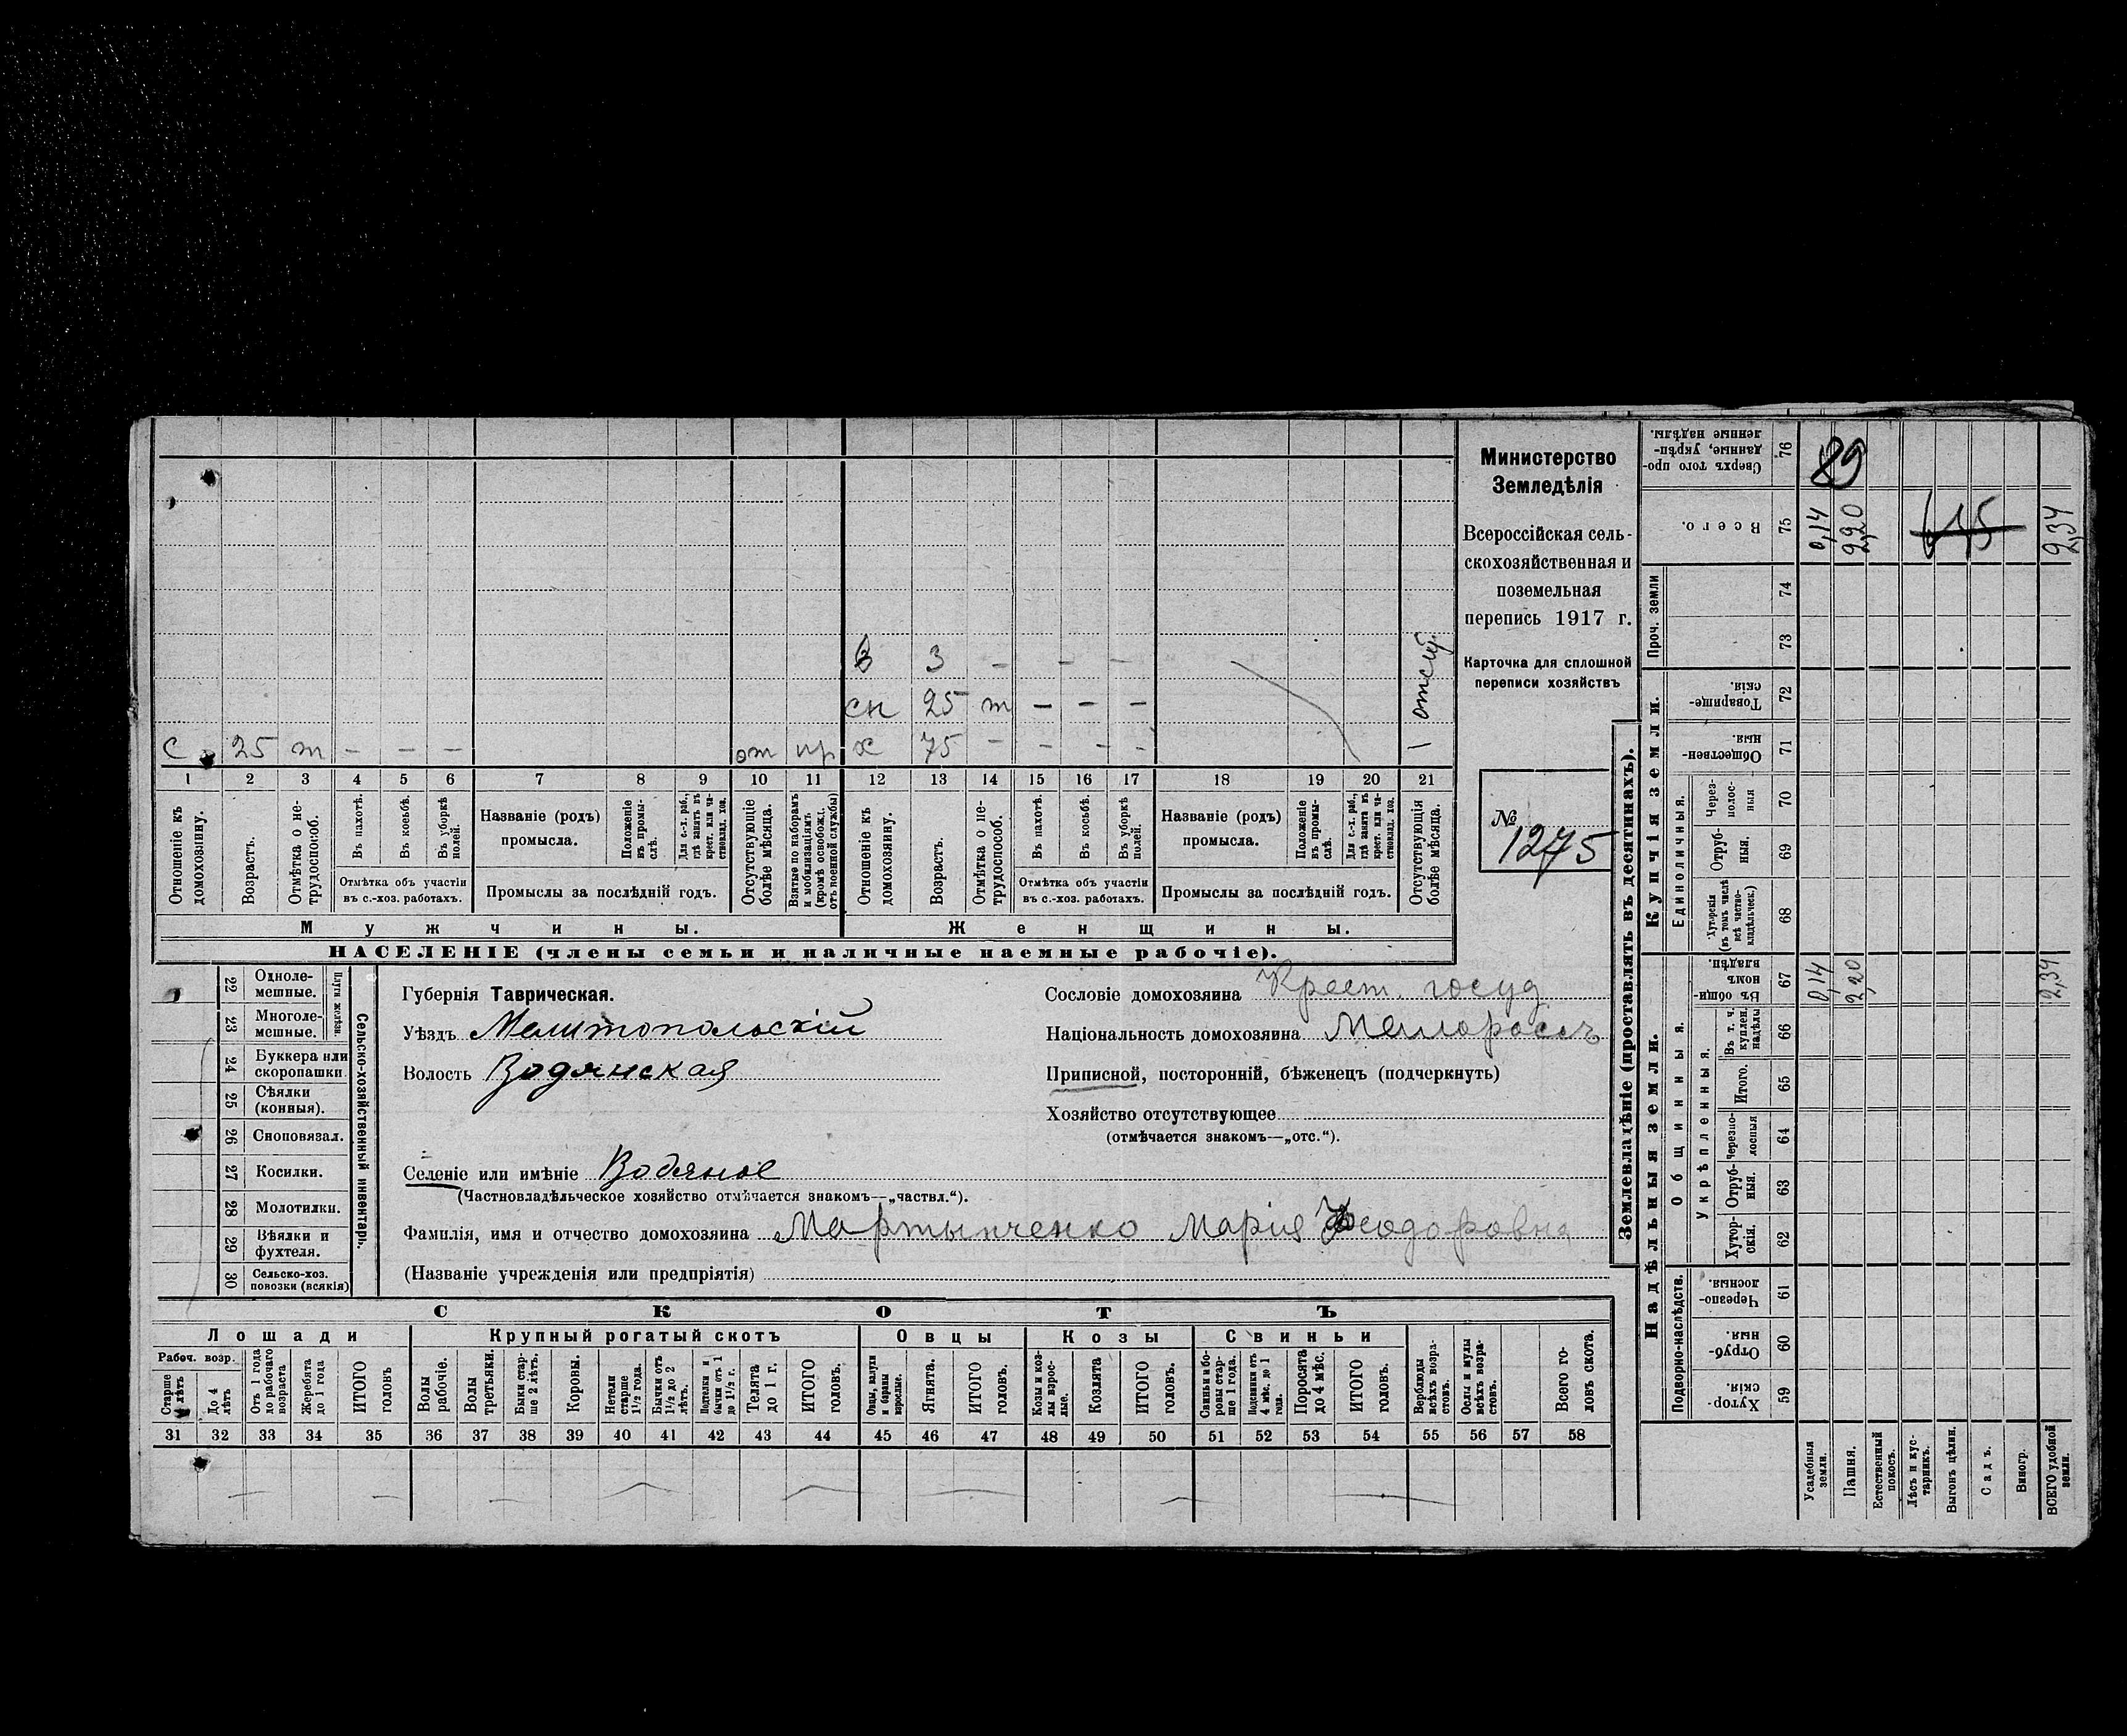 Министерство
Земледѣлія
Всероссійская сель-
скохозяйственная и
поземельная
перепись 1917 г.
Карточка для сплошной
переписи хозяйствъ
№
1275
3 3 – – –
сн 25 т – – – отсут
с 25 т – – – от пр х 75 – – – – –
1 2 3 4 5 6 7 8 9 10 11 12 13 14 15 16 17 18 19 20 21
Отношеніе къ домохозяину.
Возрастъ.
Отмѣтка о не-трудоспособ.
Въ пахотѣ.
Въ косьбѣ.
Въ уборкѣ полей.
Отмѣтка объ участіи
въ с.-хоз. работахъ.
Названіе (родъ)
промысла.
Положеніе въ промы-слѣ.
Для с.-х. раб., гдѣ занятъ въ крест. или ча-стновлад. хоз.
Промыслы за послѣдній годъ.
Отсутствующіе болѣе мѣсяца.
Взятые по наборамъ и мобилизаціямъ (кромѣ освобожд. отъ военной службы)
Отношеніе къ домохозяину.
Возрастъ.
Отмѣтка о не-трудоспособ.
Въ пахотѣ.
Въ косьбѣ.
Въ уборкѣ полей.
Отмѣтка объ участіи
въ с.-хоз. работахъ.
Названіе (родъ)
промысла.
Положеніе въ промы-слѣ.
Для с.-х. раб., гдѣ занятъ въ крест. или ча-стновлад. хоз.
Промыслы за послѣдній годъ.
Отсутствующія болѣе мѣсяца.
Мужчины. Женщины.
НАСЕЛЕНІЕ (члены семьи и наличные наемные рабочіе).
22 Одноле-мешные.
23 Многоле-мешные.
Плуги желѣзн.
24 Буккера или скоропашки
25 Сѣялки (конныя).
26 Сноповязал.
27 Косилки.
28 Молотилки.
29 Вѣялки и фухтеля.
30 Сельско-хоз. повозки (всякія)
Сельско-хозяйственный инвентарь.
Губернія Таврическая.
Уѣздъ Мелитопольскій
Волость Водянская
Селеніе или имѣніе Водяное
(Частновладѣльческое хозяйство отмѣчается знакомъ—„частвл.“).
Фамилія, имя и отчество домохозяина Мартынченко Марія Феодоровна
(Названіе учрежденія или предпріятія)
Сословіе домохозяина Крест. госуд
Національность домохозяина Малороссъ
Приписной, посторонній, бѣженецъ (подчеркнуть)
Хозяйство отсутствующее
(отмѣчается знакомъ—„отс.“).
СКОТЪ
Лошади Крупный рогатый скотъ Овцы Козы Свиньи
Рабоч. возр.
Старше 4 лѣтъ
До 4 лѣтъ
Отъ 1 года до рабочаго возраста
Жеребята до 1 года
ИТОГО головъ
Волы рабочіе.
Волы третьяки.
Быки стар-ше 2 лѣтъ.
Коровы.
Нетели старше 1½ года.
Бычки отъ 1½ до 2 лѣтъ.
Подтелки и бычки отъ 1 до 1½ г.
Телята до 1 г.
ИТОГО головъ.
Овцы, валухи и бараны взрослые.
Ягнята.
ИТОГО головъ.
Козы и коз-лы взрос-лые.
Козлята
ИТОГО головъ.
Свиньи и бо-ровы стар-ше 1 года.
Подсвинки отъ 4 мѣс. до 1 года.
Поросята до 4 мѣс.
ИТОГО головъ.
Верблюды всѣхъ возра-стовъ.
Ослы и мулы всѣхъ возра-стовъ.
Всего го-ловъ скота.
31 32 33 34 35 36 37 38 39 40 41 42 43 44 45 46 47 48 49 50 51 52 53 54 55 56 57 58
Землевладѣніе (проставлять въ десятинахъ).
Надѣльныя земли.
Купчія земли.
Проч. земли
Подворно-наслѣдств.
Общинныя.
Укрѣпленныя.
Единоличныя.
Сверхъ того про-данные, укрѣп-ленные надѣлы. 76 89
Всего. 75 0,14 2,20 2,34
74
73
Товарище-скія. 72
Обществен-ныя. 71
Через-полос-ныя 70
Отруб-ныя. 69
Хуторскія (въ томъ числѣ всѣ частно-владѣльческ.) 68
Въ общин-номъ владѣн. 67 0,14 2,20 2,34
Въ т. ч. куплен. надѣлы 66
Итого. 65
Черезпо-лосныя 64
Отруб-ныя. 63
Хутор-скія. 62
Черезпо-лосныя. 61
Отруб-ныя. 60
Хутор-скія. 59
Усадебныя земли.
Пашня.
Естественный покосъ.
Лѣсъ и кус-тарникъ.
Выгонъ цѣлин.
Садъ.
Виногр.
ВСЕГО удобной земли.